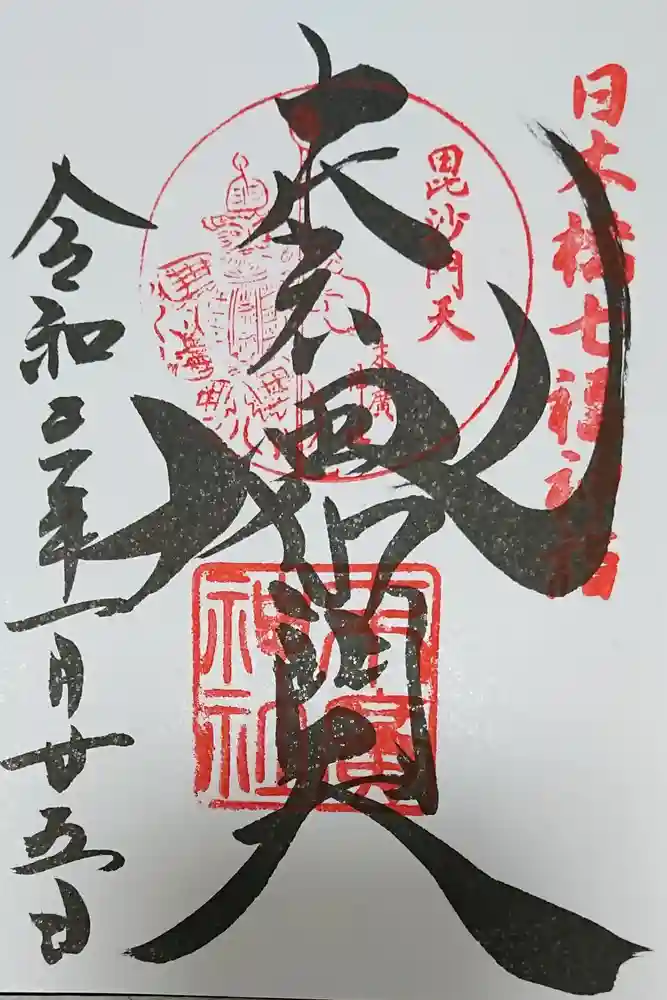 日本橋七福神詣
毘沙門天
末廣
毘沙門天
末廣
神社
令和三年一月廿五日